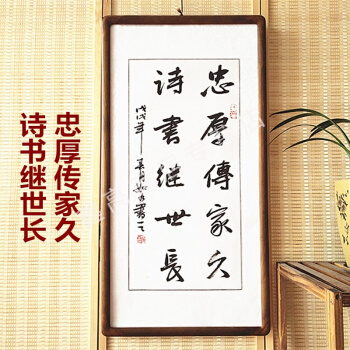 忠厚傳家久
诗書继世長
戊戌年
忠厚传家久
诗书继世长